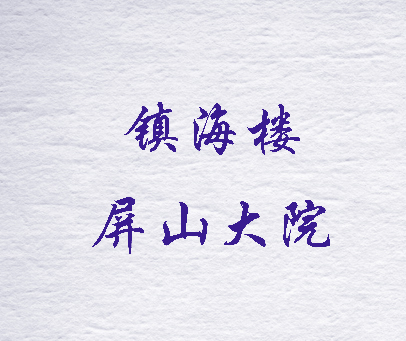 镇海楼
屏山大院